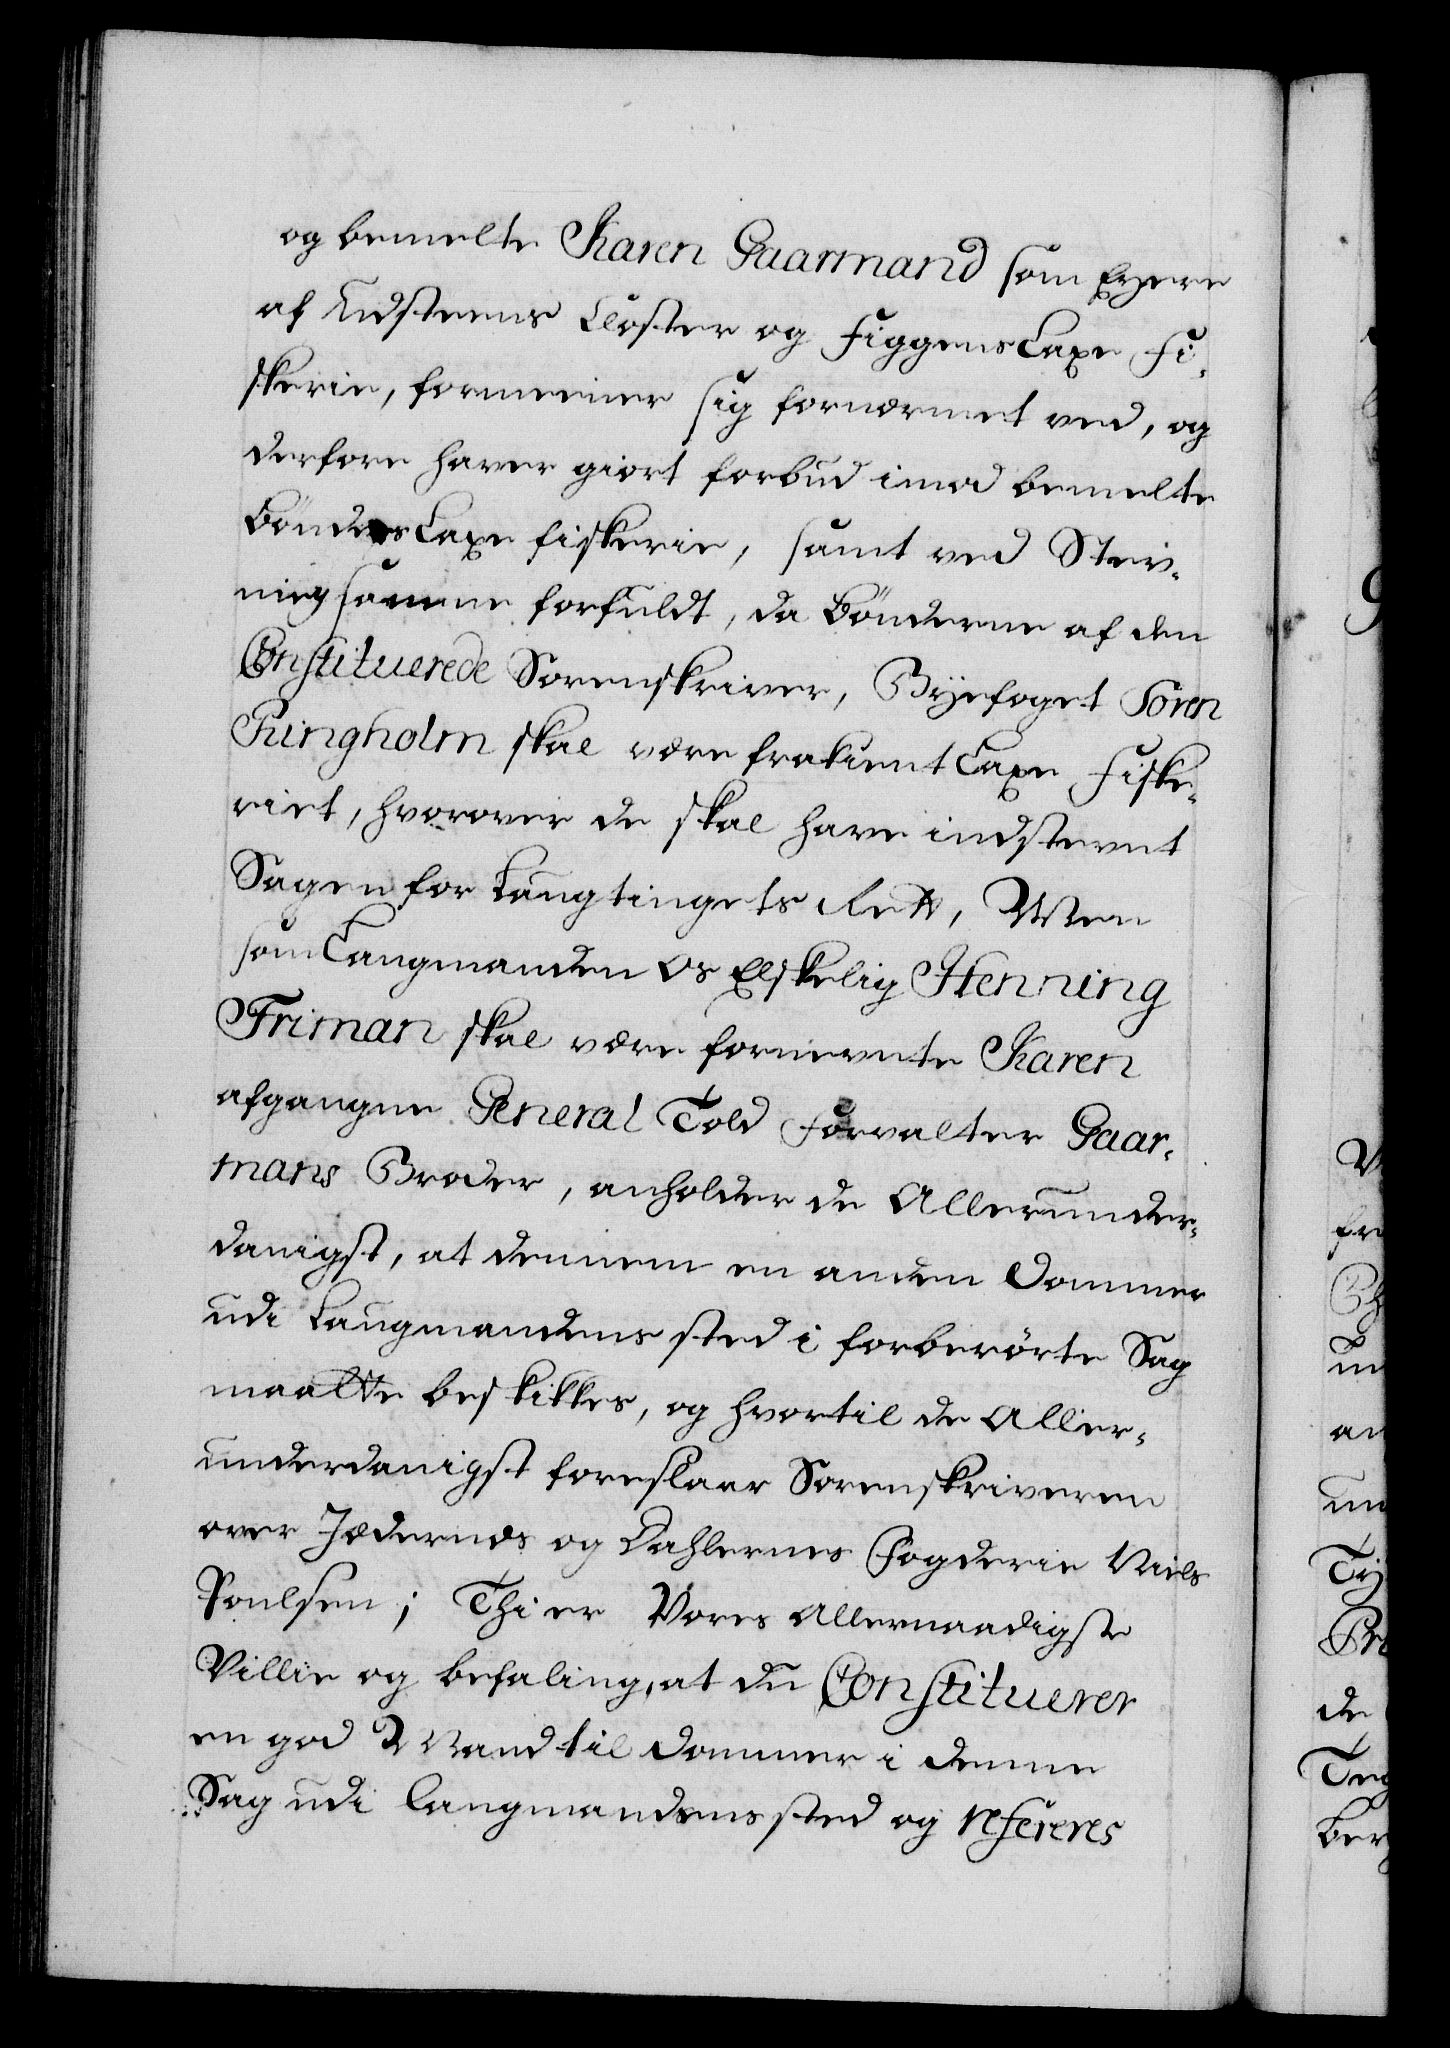 og bemelte Karen Gaarmand som Eyere
af Udsteens Closter og Figgens Laxe Fi¬
skerie, formeener sig fornermet ved, og
derfore haver giort forbud imod bemelte
Bønders Laxe fiskerie, samt ved Stev¬
ning samme forfuldt, da Bønderne af den
Constituerede Sorenskriver, Byefoget Sören
Ringholm skal være frakient Laxe Fiske¬
riet, hvorover de skal have indstevnt
Sagen for Laugtingets Rett, Men
som Laugmanden Os Elskelig Henning
Friman skal være fornevnte Karen
afgangne General Told Forvalter Gaar¬
mans Broder, anholder de Allerunder¬
danigst, at dennem en anden Dommer
udi Laugmandens sted i forberørte Sag
maatte beskikkes, og hvortil de Aller¬
underdanigst foreslaar Sorenskriveren
over Jædernes og Dahlernes Fogderie Niels
Poulsen; Thi er Vores Allernaadigste
Villie og befaling, at du Constituerer
en god Mand til Dommer i denne
Sag udi Laugmandens sted og refereres